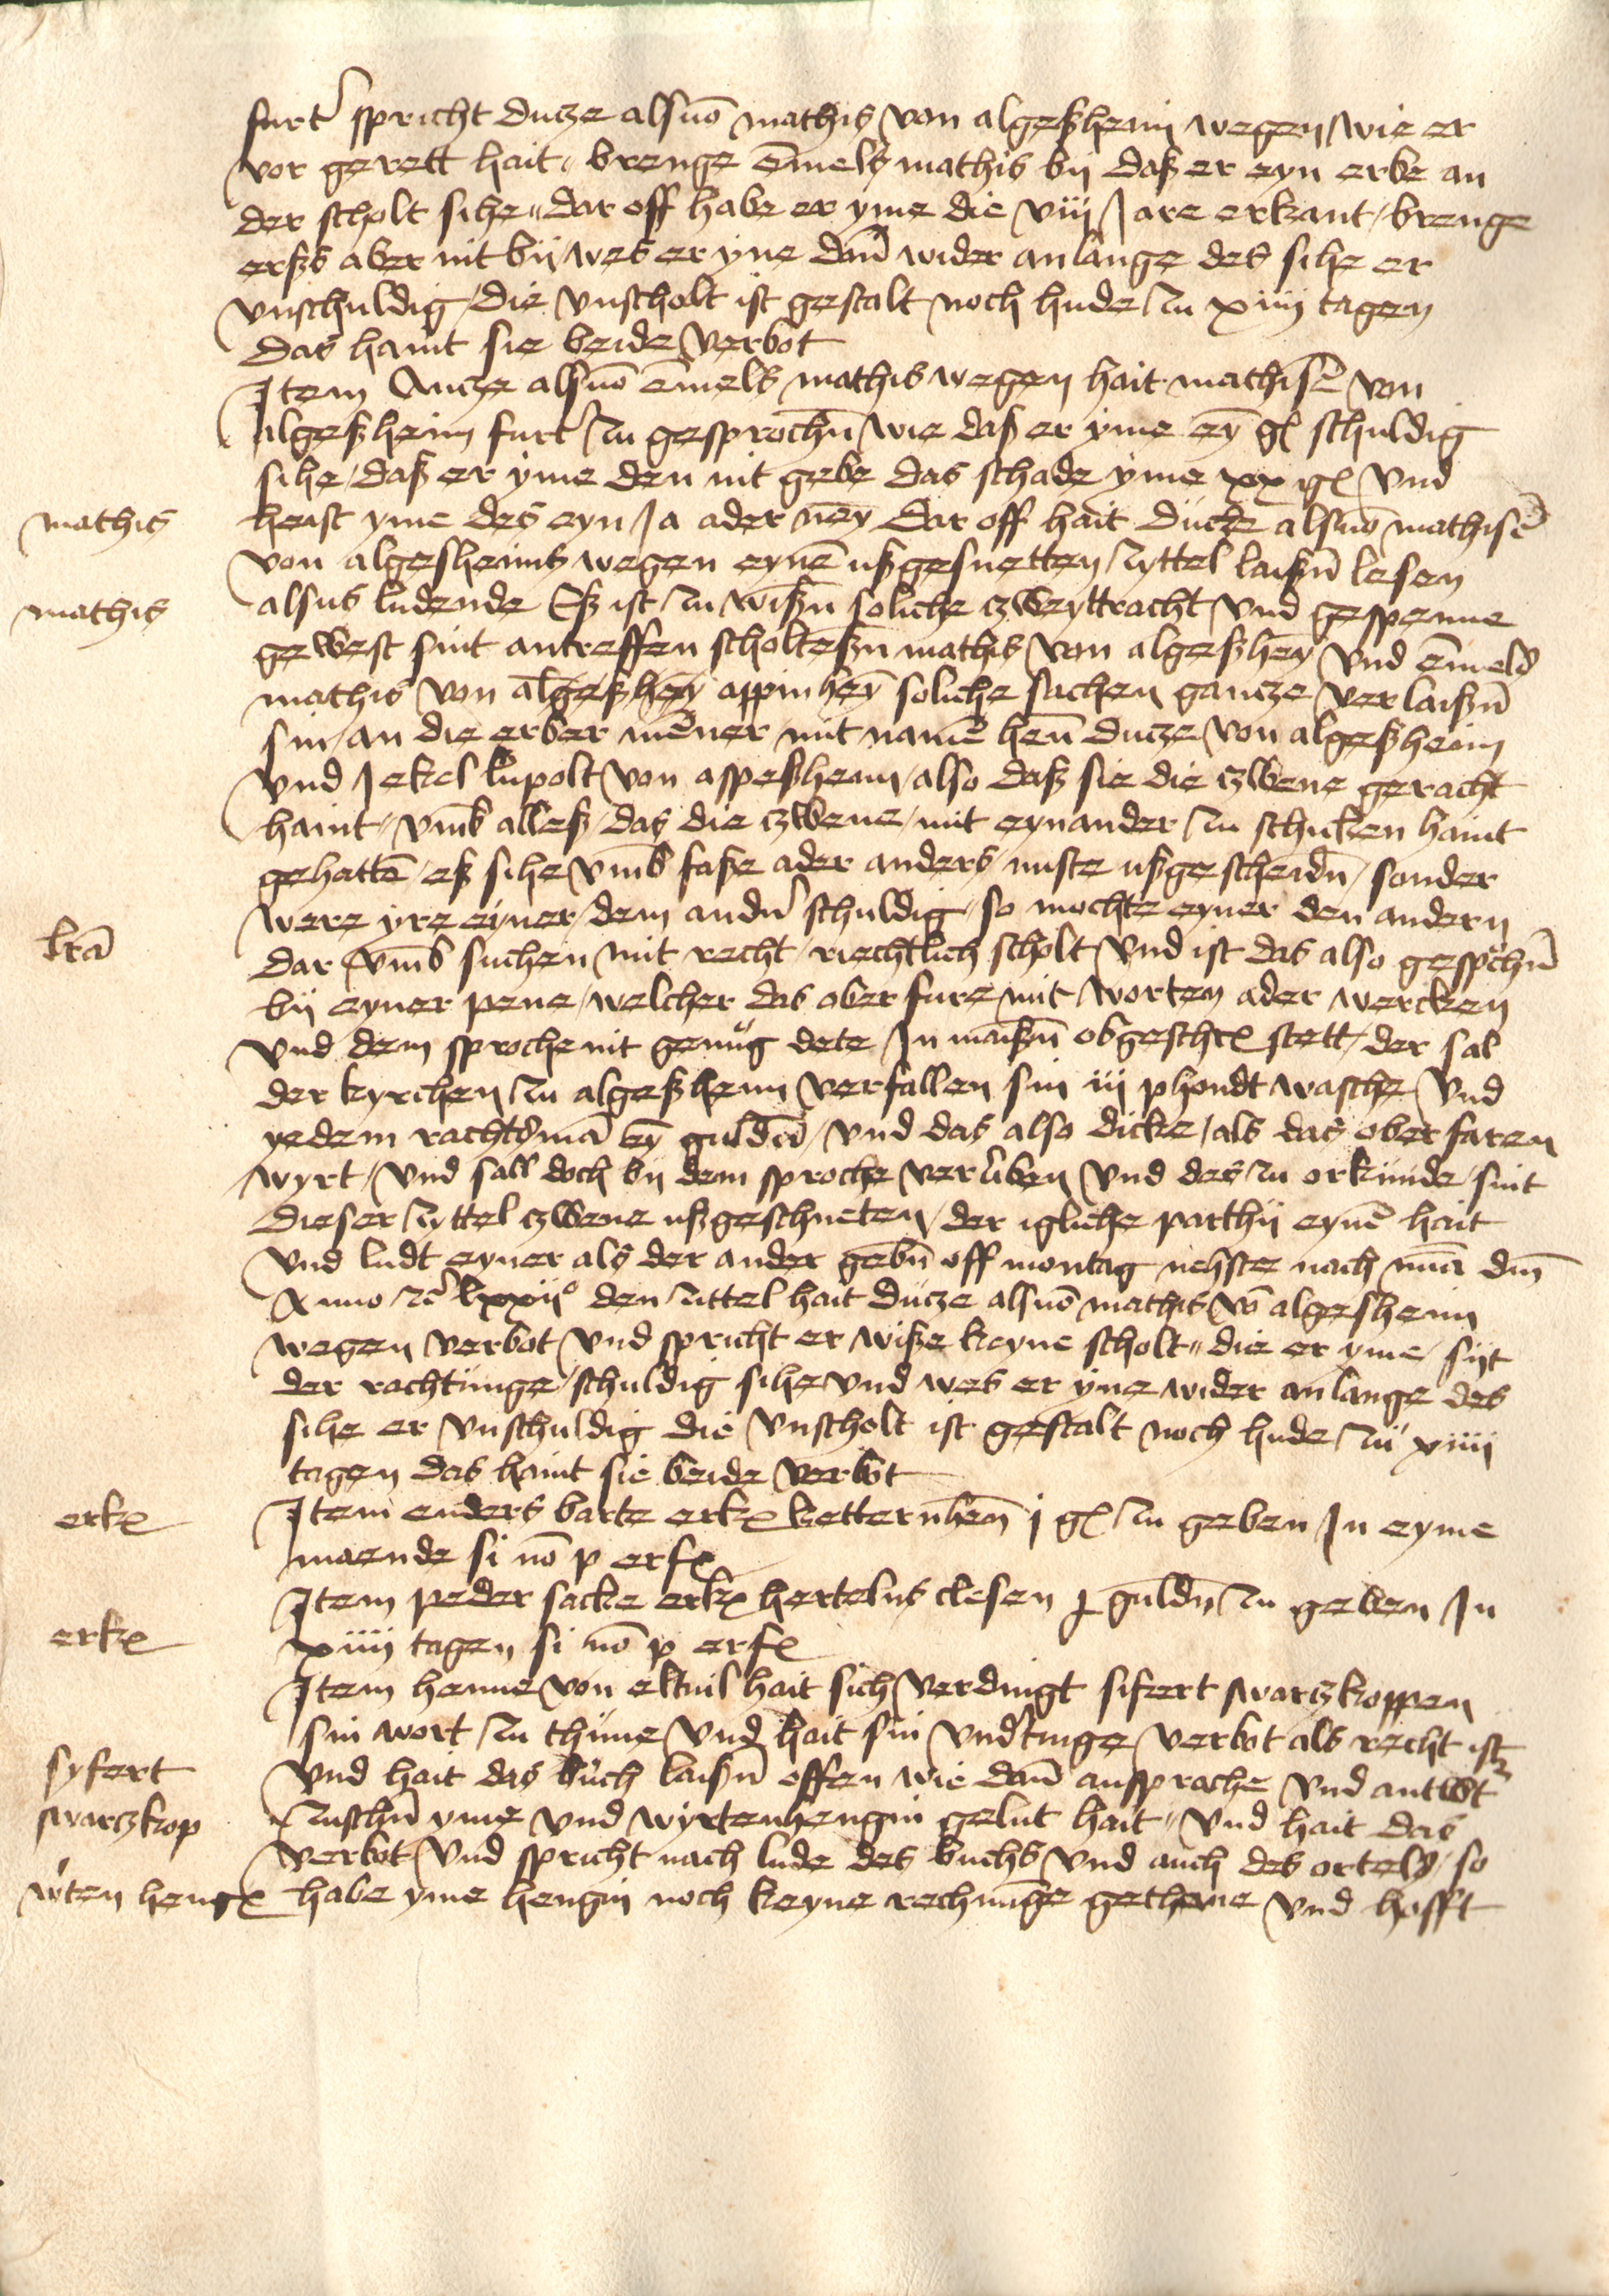 furt' spricht Ducze alsuo mathis von algeßheim wegen wie er
vor gerett hait brenge emels mathis by daß er eyn erbe an
der scholt sihe dar off habe er yme die viii Jare erkant brenge
erßs aber nit bij wes er yne dan wider anlange des sihe er
vnschuldig die vnscholt ist gestalt noch hude zu xiiii tagen
Das haint sie beide verbot
Item Ancze alsuo emels mathis wegen hait mathise von
algeßheim furt' zu gesprochn wie daß er yme ey gl schuldig
sihe daß er yme den nit gebe das schade yme xx gl vnd
mathis
heist yme des eyn Ja ader ney Dar off hait ducze alsuo mathise
von algesheims wegen eyne ußgesnetten zyttel laißn lesen
mathis
alsus ludende Eß ist zu wißn soliche czweyttracht vnd gespenne
gewest sint antreffen scholteßn mathis von algeßhey vnd emels
mathis von algeßhey appinhey soliche sachen gancze verlaißn
sin an die erber mener mit name hen ducze von algeßheim
vnd Jekel lupolt von appeßheim also daß sie die czwene geracht
haint vmb alleß das die czwene mit eynander zu schicken haint
gehatte eß sihe vmb faße ader anders nuste ußgescheidn sonder
were yre eyner dem andn' schuldig so mochte eyner den andern
lra
dar vmb suchen mit recht riechtlich scholt vnd ist das also gespochn
bij eyner pene welcher das ober fure mit worten ader wercken
vnd dem sproche nit genug dete In maißn obgeschr stett der sal
der kyrchen zu algeßheim verfallen sin iii phondt wasche vnd
yedem rachtsma ey gulde vnd das also dicke als das ober faren
wyrt vnd sall doch by dem sproche verliben vnd des zu orkunde sint
dieser zyttel czwene ußgeschneten der igliche parthij eyne hait
vnd ludt eyner als der ander gebn off montag nehste nach nua dm
Anno rc lxxii° den zittel hait ducze alsuo mathis vo algesheim
wegen verbot vnd spricht er wiße keyne scholt die er yme sijt
der rachtunge schuldig sihe vnd wes er yne wider anlange des
sihe er vnschuldig die vnscholt ist gestalt noch hude zu xiiii
tagen das haint sie beide verbot
erk
Item enders barte erk ketternhen j gl zu geben In eyme
maende si no p erf
erk
Item peder sacke erk hertelns clesen j guldn zu geben In
xiiii tagen si no p erf
Item henne von eltuil hait sich verdingt sifert swarczkoppen
sin wort zu thune vnd hait sin vnd'tinge verbot als recht ist
syfert
swarczkop
vnd hait das buch laißn offen wie dan ansprache vnd antwt
zuschn yme vnd wyrtenhengin gelut hait vnd hait das
verbot vnd spricht nach lude des buchs vnd auch des ortels so
w'ten heng
habe yme hengin noch keyne rechnunge gethane vnd hofft